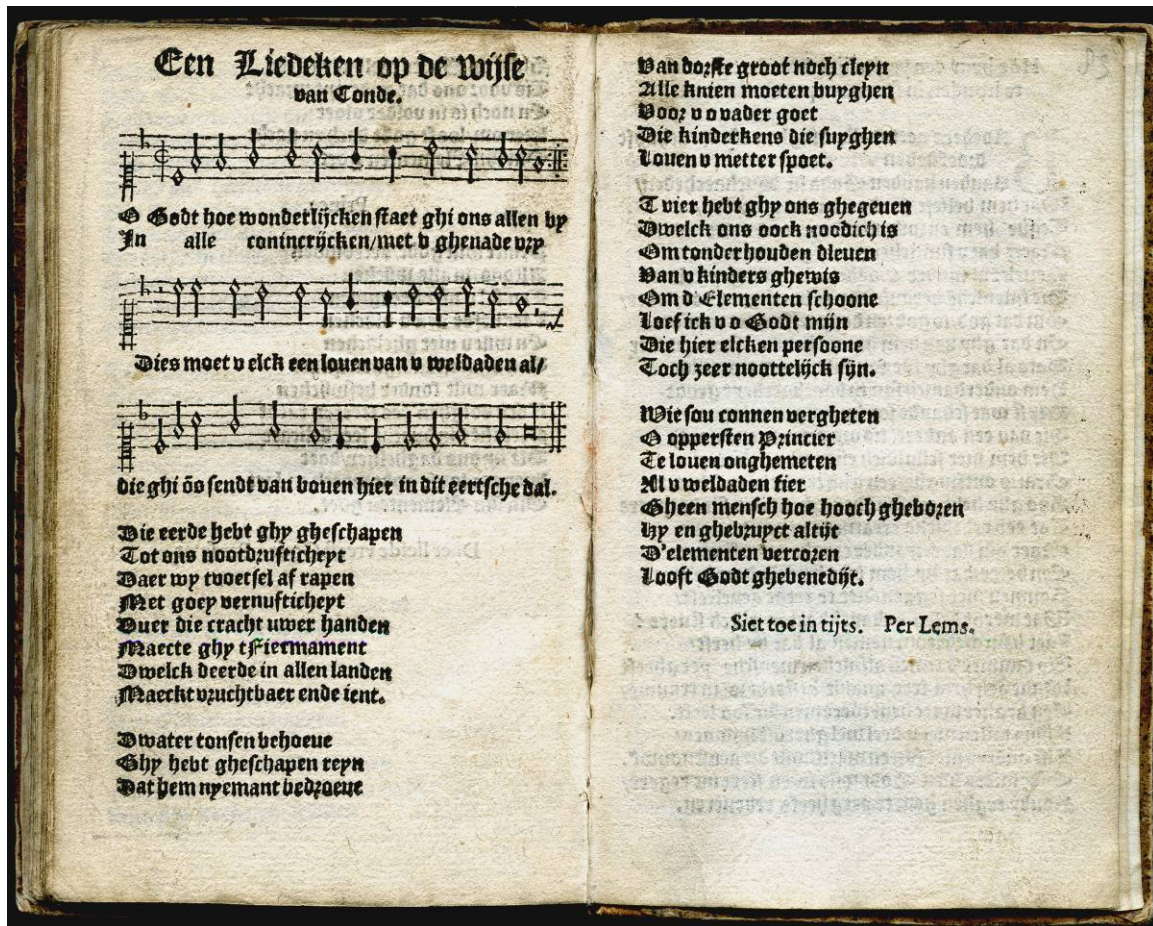 Een Liedeken op de wijse
van Conde.
O Godt hoe wonderlijcken staet ghi ons allen by
In alle conincrijcken/met v ghenade vry
Dies moet v elck een louen van v weldaden al/
die ghi õs sendt van bouen hier in dit eertsche dal.
Die eerde hebt ghy gheschapen
Tot ons nootdrufticheyt
Daer wy tvoetsel af rapen
Met goey vernufticheyt
Duer die cracht uwer handen
Maecte ghy tFiermament
Dwelck deerde in allen landen
Maeckt vruchtbaer ende ient.
Dwater tonsen behoeue
Ghy hebt gheschapen reyn
Dat hem nyemant bedroeue
Van dorste groot noch cleyn
Alle knien moeten buyghen
Voor v o vader goet
Die kinderkens die suyghen
Louen v metter spoet.
T vier hebt ghy ons ghegeuen
Dwelck ons oock noodich is
Om tonderhouden dleuen
Van v kinders ghewis
Om d'Elementen schoone
Loef ick v o Godt mijn
Die hier elcken persoone
Toch zeer noottelijck sijn.
Wie sou connen vergheten
O oppersten Princier
Te louen onghemeten
Al v weldaden fier
Gheen mensch hoe hooch gheboren
Hy en ghebruyct altijt
D'elementen vercoren
Looft Godt ghebenedijt.
Siet toe in tijts. Per Lems.